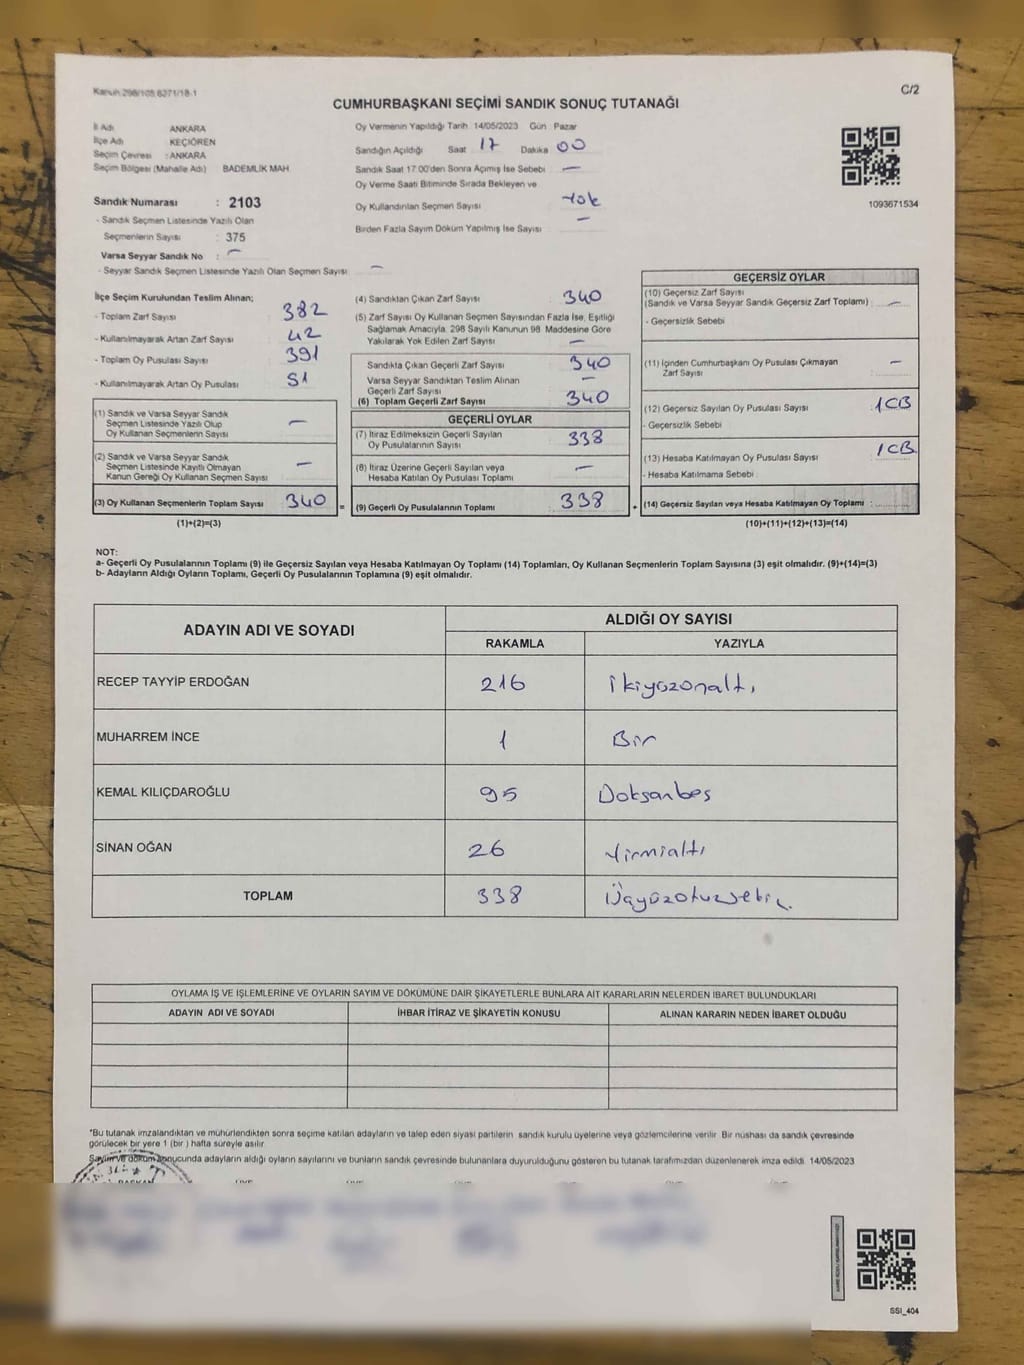 Kanun 298/105,6271/18-1
C/2
CUMHURBAŞKANI SEÇİMİ SANDIK SONUÇ TUTANAĞI
İl Adı ANKARA
İlçe Adı KEÇİÖREN
Seçim Çevresi : ANKARA
Seçim Bölgesi (Mahalle Adı) BADEMLİK MAH
Sandık Numarası : 2103
- Sandık Seçmen Listesinde Yazılı Olan
Seçmenlerin Sayısı : 375
Varsa Seyyar Sandık No : —
- Seyyar Sandık Seçmen Listesinde Yazılı Olan Seçmen Sayısı —
Oy Vermenin Yapıldığı Tarih 14/05/2023 Gün Pazar
Sandığın Açıldığı Saat 17 Dakika 00
Sandık Saat 17:00'den Sonra Açımış İse Sebebi —
Oy Verme Saati Bitiminde Sırada Bekleyen ve
Oy Kullandırılan Seçmen Sayısı Yok
Birden Fazla Sayım Döküm Yapılmış İse Sayısı —
1093671534
İlçe Seçim Kurulundan Teslim Alınan;
- Toplam Zarf Sayısı 382
- Kullanılmayarak Artan Zarf Sayısı 42
- Toplam Oy Pusulası Sayısı 391
- Kullanılmayarak Artan Oy Pusulası 51
(1) Sandık ve Varsa Seyyar Sandık
Seçmen Listesinde Yazılı Olup
Oy Kullanan Seçmenlerin Sayısı —
(2) Sandık ve Varsa Seyyar Sandık
Seçmen Listesinde Kayıtlı Olmayan
Kanun Gereği Oy Kullanan Seçmen Sayısı —
(3) Oy Kullanan Seçmenlerin Toplam Sayısı 340 =
(1)+(2)=(3)
(4) Sandıktan Çıkan Zarf Sayısı 340
(5) Zarf Sayısı Oy Kullanan Seçmen Sayısından Fazla İse, Eşitliği
Sağlamak Amacıyla, 298 Sayılı Kanunun 98. Maddesine Göre
Yakılarak Yok Edilen Zarf Sayısı —
Sandıkta Çıkan Geçerli Zarf Sayısı 340
Varsa Seyyar Sandıktan Teslim Alınan
Geçerli Zarf Sayısı —
(6) Toplam Geçerli Zarf Sayısı 340
GEÇERLİ OYLAR
(7) İtiraz Edilmeksizin Geçerli Sayılan
Oy Pusulalarının Sayısı 338
(8) İtiraz Üzerine Geçerli Sayılan veya
Hesaba Katılan Oy Pusulası Toplamı —
(9) Geçerli Oy Pusulalarının Toplamı 338 +
GEÇERSİZ OYLAR
(10) Geçersiz Zarf Sayısı
(Sandık ve Varsa Seyyar Sandık Geçersiz Zarf Toplamı) —
- Geçersizlik Sebebi
(11) İçinden Cumhurbaşkanı Oy Pusulası Çıkmayan
Zarf Sayısı —
(12) Geçersiz Sayılan Oy Pusulası Sayısı 1CB
- Geçersizlik Sebebi
(13) Hesaba Katılmayan Oy Pusulası Sayısı 1CB
- Hesaba Katılmama Sebebi
(14) Geçersiz Sayılan veya Hesaba Katılmayan Oy Toplamı :
(10)+(11)+(12)+(13)=(14)
NOT:
a- Geçerli Oy Pusulalarının Toplamı (9) ile Geçersiz Sayılan veya Hesaba Katılmayan Oy Toplamı (14) Toplamları, Oy Kullanan Seçmenlerin Toplam Sayısına (3) eşit olmalıdır. (9)+(14)=(3)
b- Adayların Aldığı Oyların Toplamı, Geçerli Oy Pusulalarının Toplamına (9) eşit olmalıdır.
ADAYIN ADI VE SOYADI ALDIĞI OY SAYISI
RAKAMLA YAZIYLA
RECEP TAYYİP ERDOĞAN 216 İkiyüzonaltı
MUHARREM İNCE 1 Bir
KEMAL KILIÇDAROĞLU 95 Doksanbeş
SİNAN OĞAN 26 Yirmialtı
TOPLAM 338
OYLAMA İŞ VE İŞLEMLERİNE VE OYLARIN SAYIM VE DÖKÜMÜNE DAİR ŞİKAYETLERLE BUNLARA AİT KARARLARIN NELERDEN İBARET BULUNDUKLARI
ADAYIN ADI VE SOYADI İHBAR İTİRAZ VE ŞİKAYETİN KONUSU ALINAN KARARIN NEDEN İBARET OLDUĞU
*Bu tutanak imzalandıktan ve mühürlendikten sonra seçime katılan adayların ve talep eden siyasi partilerin sandık kurulu üyelerine veya gözlemcilerine verilir. Bir nüshası da sandık çevresinde
görülecek bir yere 1 (bir) hafta süreyle asılır.
Sayım ve döküm sonucunda adayların aldığı oyların sayılarını ve bunların sandık çevresinde bulunanlara duyurulduğunu gösteren bu tutanak tarafımızdan düzenlenerek imza edildi. 14/05/2023
SSI_404